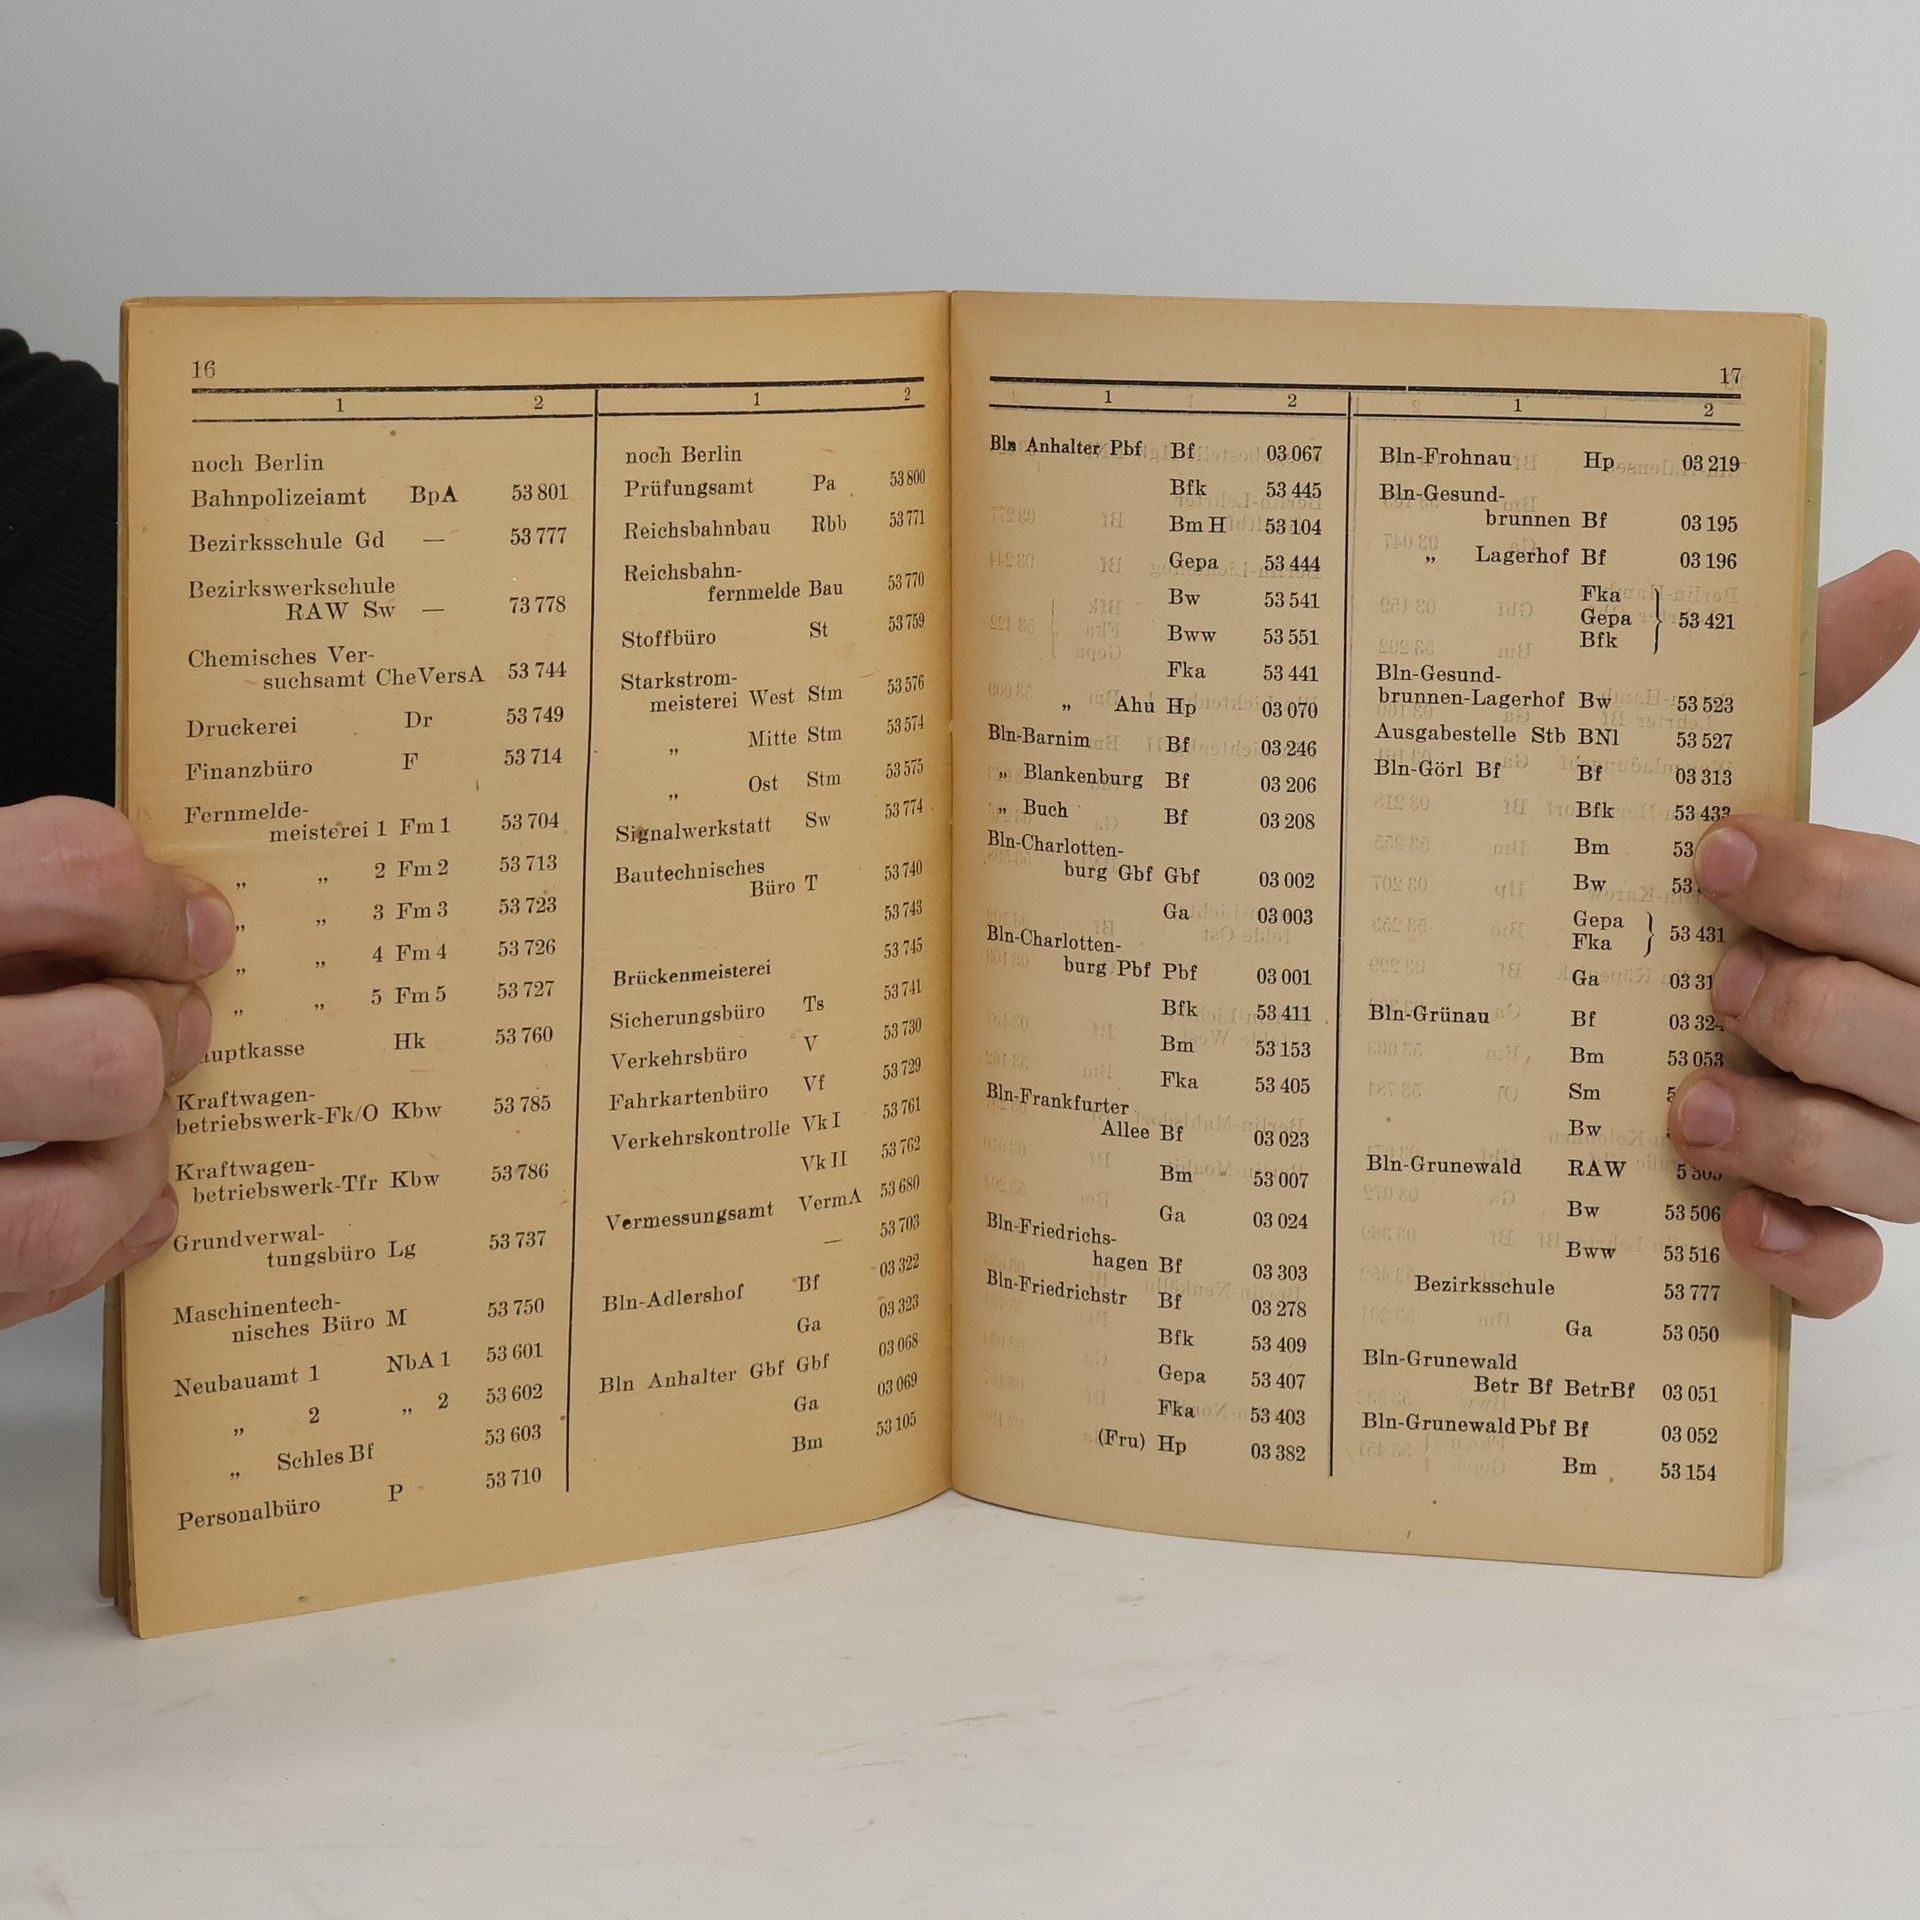 16
1 2
noch Berlin
Bahnpolizeiamt BpA 53 801
Bezirksschule Gd — 53 777
Bezirkswerkschule
RAW Sw — 73 778
Chemisches Ver-
suchsamt CheVersA 53 744
Druckerei Dr 53 749
Finanzbüro F 53 714
Fernmelde-
meisterei 1 Fm 1 53 704
„ „ 2 Fm 2 53 713
„ „ 3 Fm 3 53 723
„ „ 4 Fm 4 53 726
„ „ 5 Fm 5 53 727
Hk 53 760
Kraftwagen-
betriebswerk-Fk/O Kbw 53 785
Kraftwagen-
betriebswerk-Tfr Kbw 53 786
Grundverwal-
tungsbüro Lg 53 737
Maschinentech-
nisches Büro M 53 750
Neubauamt 1 NbA 1 53 601
„ 2 „ 2 53 602
„ Schles Bf 53 603
Personalbüro P 53 710
1 2
noch Berlin
Prüfungsamt Pa 53 800
Reichsbahnbau Rbb 53 771
Reichsbahn-
fernmelde Bau 53 770
Stoffbüro St 53 759
Starkstrom-
meisterei West Stm 53 576
„ Mitte Stm 53 574
„ Ost Stm 53 575
Signalwerkstatt Sw 53 774
Bautechnisches
Büro T 53 740
53 743
Brückenmeisterei 53 745
Sicherungsbüro Ts 53 741
Verkehrsbüro V 53 730
Fahrkartenbüro Vf 53 729
Verkehrskontrolle Vk I 53 761
Vk II 53 762
Vermessungsamt VermA 53 680
— 53 703
Bln-Adlershof Bf 03 322
Ga 03 323
Bln Anhalter Gbf Gbf 03 068
Ga 03 069
Bm 53 105
17
1 2
Bln Anhalter Pbf Bf 03 067
Bfk 53 445
Bm H 53 104
Gepa 53 444
Bw 53 541
Bww 53 551
Fka 53 441
„ Ahu Hp 03 070
Bln-Barnim Bf 03 246
„ Blankenburg Bf 03 206
„ Buch Bf 03 208
Bln-Charlotten-
burg Gbf Gbf 03 002
Ga 03 003
Bln-Charlotten-
burg Pbf Pbf 03 001
Bfk 53 411
Bm 53 153
Fka 53 405
Bln-Frankfurter
Allee Bf 03 023
Bm 53 007
Ga 03 024
Bln-Friedrichs-
hagen Bf 03 303
Bln-Friedrichstr Bf 03 278
Bfk 53 409
Gepa 53 407
Fka 53 403
(Fru) Hp 03 382
1 2
Bln-Frohnau Hp 03 219
Bln-Gesund-
brunnen Bf 03 195
„ Lagerhof Bf 03 196
Fka
Gepa } 53 421
Bfk
Bln-Gesund-
brunnen-Lagerhof Bw 53 523
Ausgabestelle Stb BNl 53 527
Bln-Görl Bf Bf 03 313
Bfk 53 433
Bm 53
Bw 53
Gepa
Fka } 53 431
Ga 03
Bln-Grünau Bf 03 324
Bm 53 053
Sm
Bw
Bln-Grunewald RAW
Bw 53 506
Bww 53 516
Bezirksschule 53 777
Ga 53 050
Bln-Grunewald
Betr Bf BetrBf 03 051
Bln-Grunewald Pbf Bf 03 052
Bm 53 154